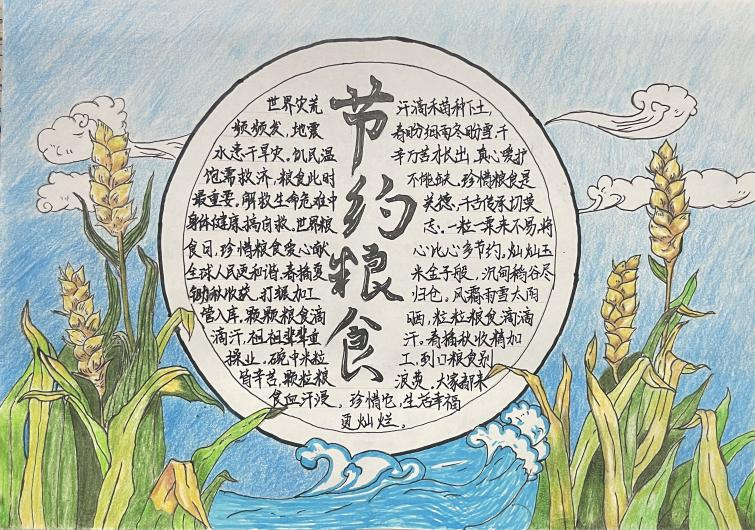 节约粮食
世界灾荒
频频发，地震
水患干旱灾。饥民温
饱需救济，粮食此时
最重要。解救生命危难中
身体健康搞自救。世界粮
食日，珍惜粮食爱心献
全球人民更和谐。春播夏
锄秋收获，打振加工
偿入库。颗颗粮食滴
滴汗，祖祖辈辈重
操业。碗中米粒
皆辛苦，颗粒粮
食血汗浸。
汗滴禾苗种下土，
春盼细雨冬盼雪，千
辛万苦才长出，真心爱护
不能缺。珍惜粮食是
美德，千古传承切莫
忘。一粒一粟来不易，将
心比心多节约。灿灿玉
米金子般，沉甸稻谷尽
归仓。风霜雨雪太阳
晒，粒粒粮食滴滴
汗。春播秋收精加
工，到口粮食别
浪费。大家都来
珍惜它，生活幸福
更灿烂。